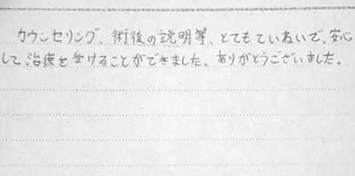 カウンセリング、術後の説明等、とてもていねいで、安心
して治療を受けることができました。ありがとうございました。